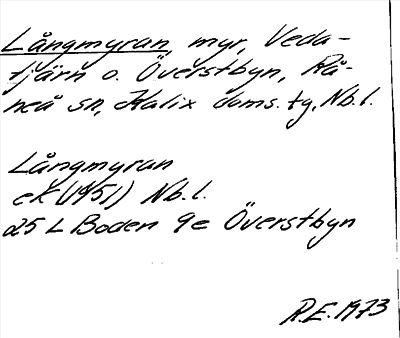 Långmyran, myr, Veda-
tjärn o. Överstbyn, Rå-
neå sn, Kalix doms. tg, Nb. l.
Långmyran
ek (1951) Nb. l.
25 L Boden 9e Överstbyn
R.E. 1973